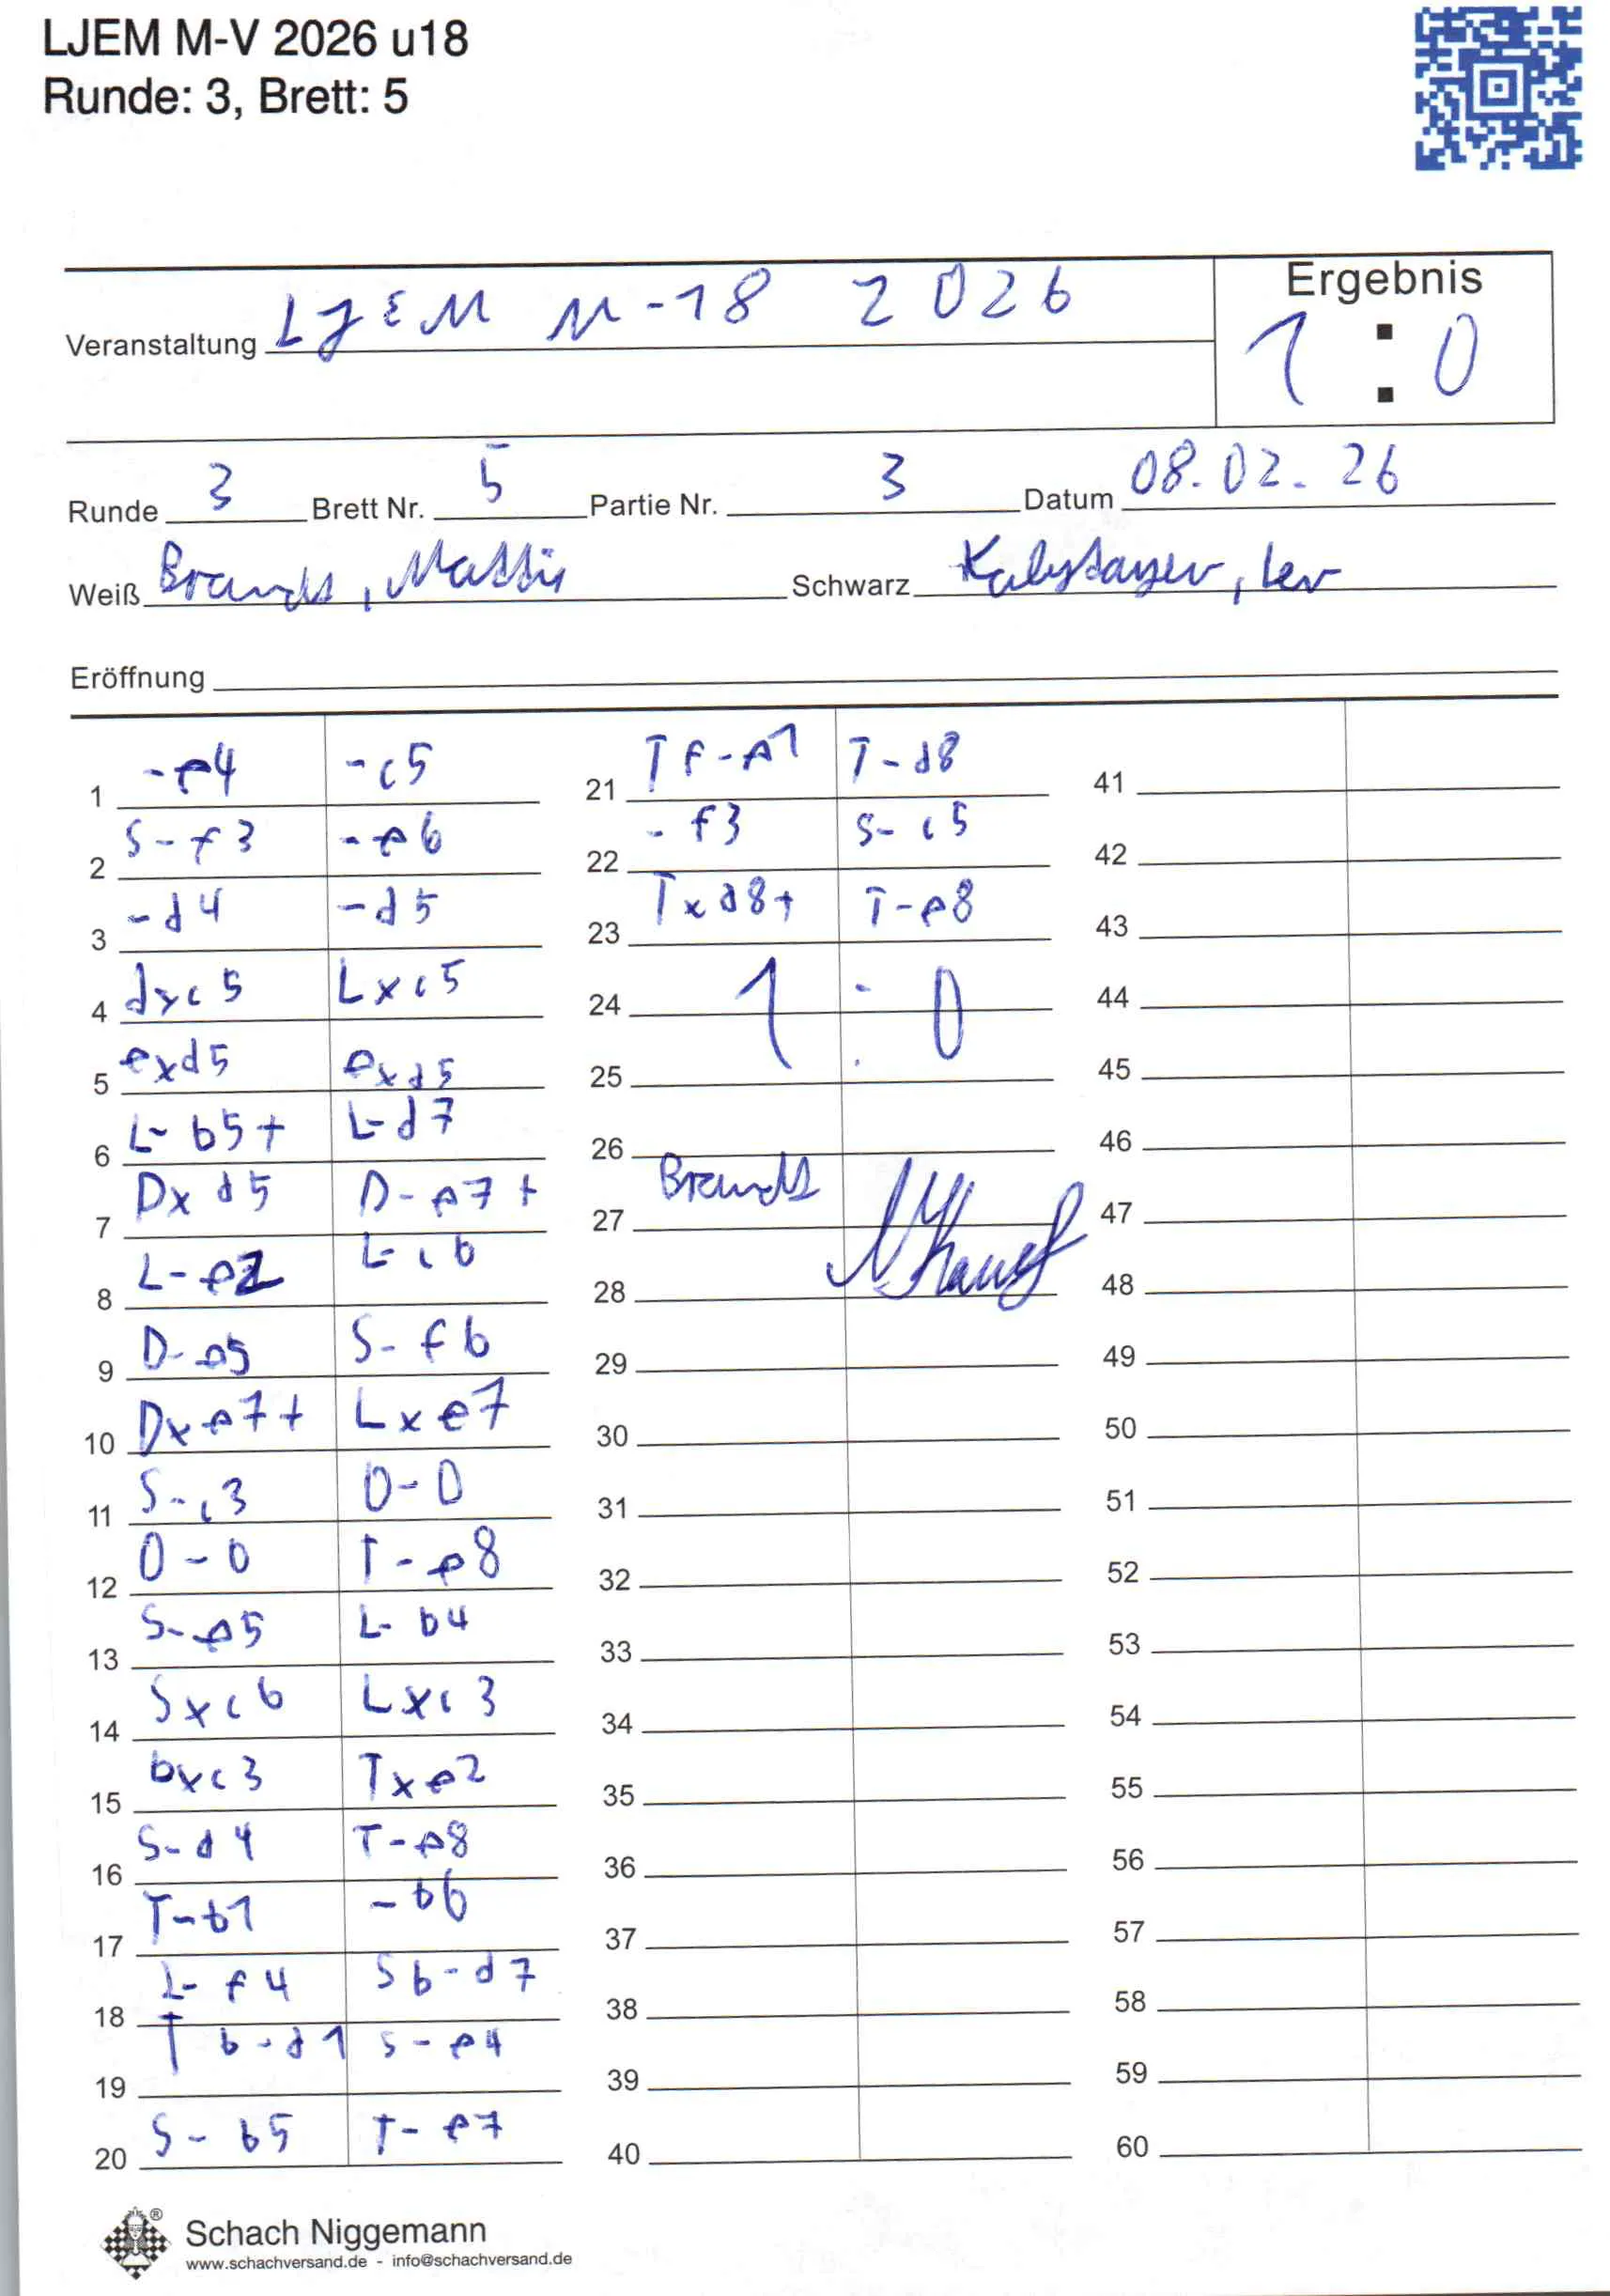 LJEM M-V 2026 u18
Runde: 3, Brett: 5
Veranstaltung LJEM U-18 2026
Ergebnis
1 : 0
Runde 3 Brett Nr. 5 Partie Nr. 3 Datum 08.02.26
Weiß Brands, Mattis Schwarz Lev
Eröffnung
1 -e4 -c5
2 S-f3 -e6
3 -d4 -d5
4 dxc5 Lxc5
5 exd5 exd5
6 L-b5+ L-d7
7 Dxd5 D-e7+
8 L-e2 L-c6
9 D-e5 S-f6
10 Dxe7+ Lxe7
11 S-c3 0-0
12 0-0 T-e8
13 S-e5 L-b4
14 Sxc6 Lxc3
15 bxc3 Txe2
16 S-d4 T-e8
17 T-b1 -b6
18 L-f4 Sb-d7
19 Tb-d1 S-e4
20 S-b5 T-e7
21 Tf-e1 T-d8
22 -f3 S-c5
23 Txd8+ T-e8
24 1 : 0
25
26
27 Brands
28
29
30
31
32
33
34
35
36
37
38
39
40
41
42
43
44
45
46
47
48
49
50
51
52
53
54
55
56
57
58
59
60
Schach Niggemann
www.schachversand.de - info@schachversand.de